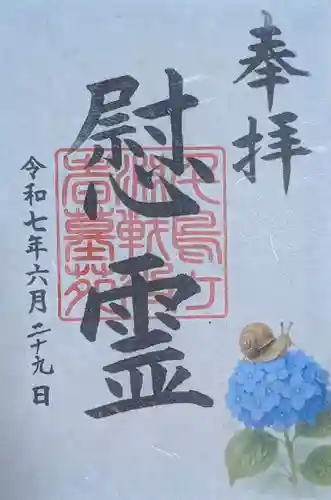 奉拝
慰霊
令和七年六月二十九日